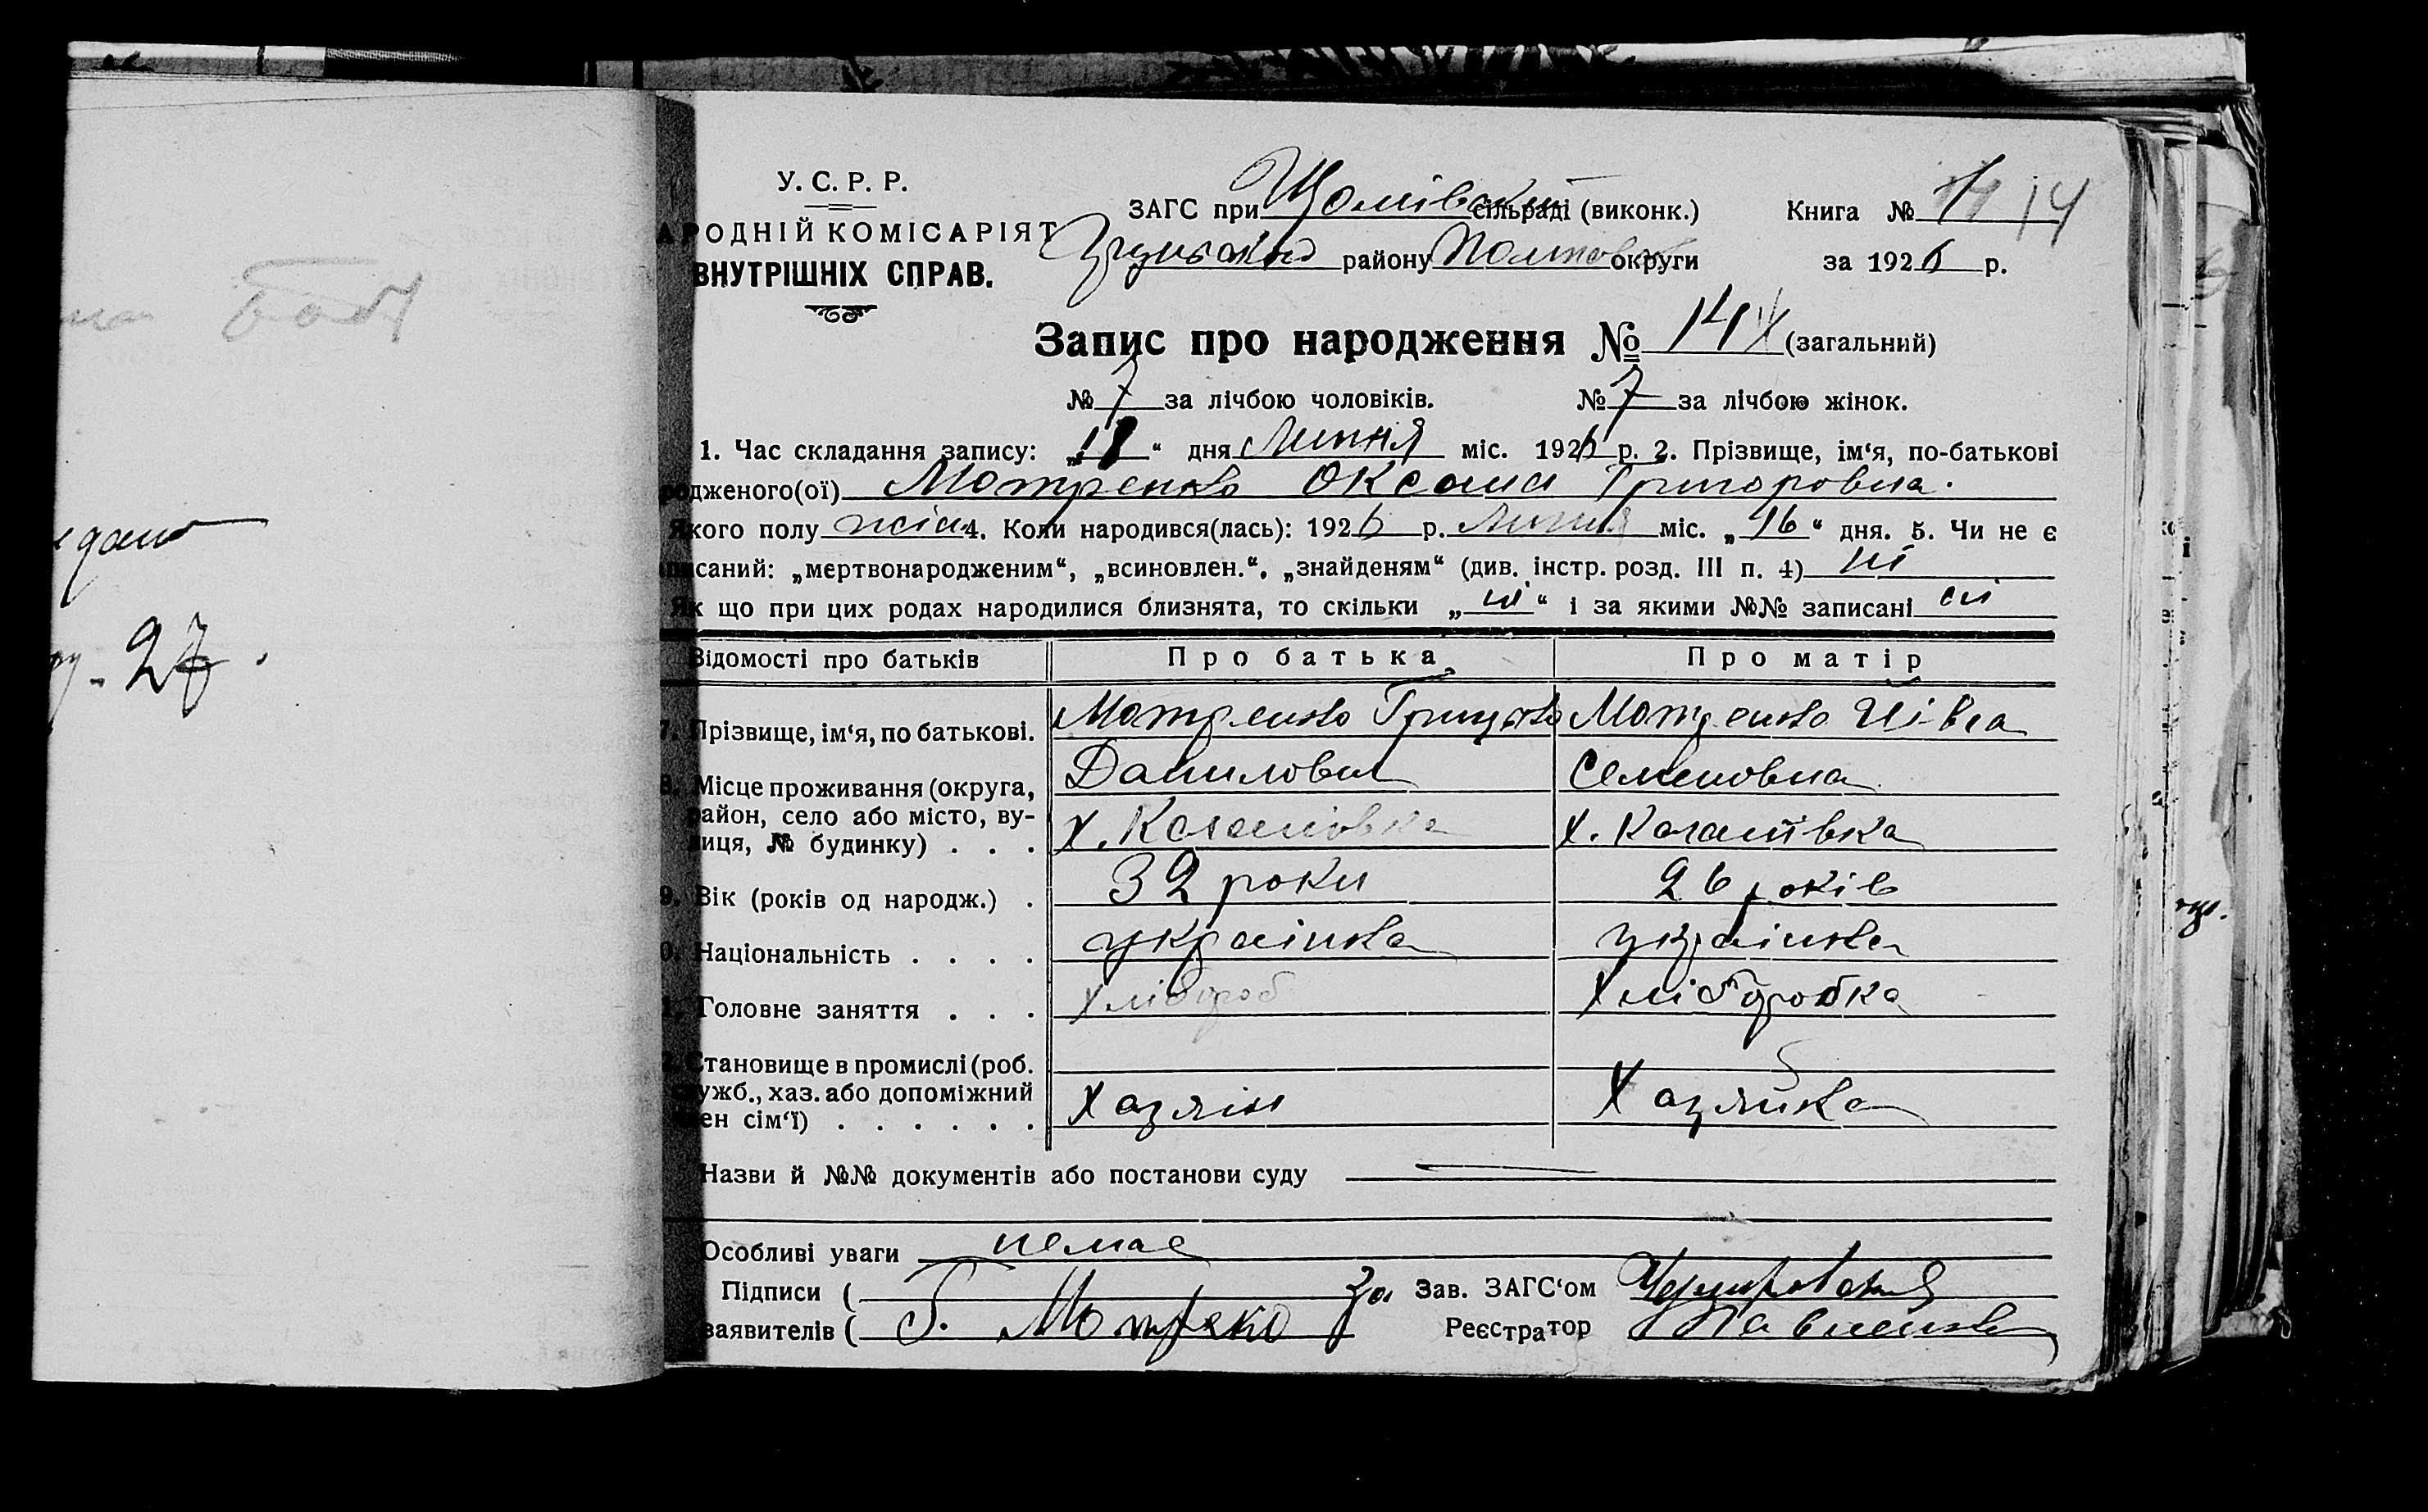 У. С. Р. Р.
АРОДНІЙ КОМІСАРІЯТ
ВНУТРІШНІХ СПРАВ.
ЗАГС при сільраді (виконк.) Книга № 14
району Полтав округи за 1926 р.
Запис про народження № 14 (загальний)
№ 7 за лічбою чоловіків. № 7 за лічбою жінок.
1. Час складання запису: „18“ дня Липня міс. 1926 р. 2. Прізвище, ім‘я, по-батькові
родженого(ої) Мотренко Оксана Григоровна.
Якого полу жін 4. Коли народився(лась): 1926 р. Липня міс. „16“ дня. 5. Чи не є
писаний: „мертвонародженим“, „всиновлен.“, „знайденям“ (див. інстр. розд. III п. 4) ні
Як що при цих родах народилися близнята, то скільки „ні“ і за якими №№ записані
Відомості про батьків Про батька Про матір
7. Прізвище, ім‘я, по батькові. Мотренко Грицько Мотренко Півна
Данилович Семеновна
8. Місце проживання (округа,
район, село або місто, ву-
лиця, № будинку) . . . х. Каганівка х. Каганівка
9. Вік (років од народж.) . 32 роки 26 років
0. Національність . . . . українка українка
1. Головне заняття . . . Хлібороб Хліборобка
Становище в промислі (роб.
ужб., хаз. або допоміжний
ен сім‘ї) . . . . . . Хазяін Хазяйка
Назви й №№ документів або постанови суду
Особливі уваги немає
Підписи ( За Зав. ЗАГС‘ом
заявителів ( Г. Мотреко Реєстратор Павленко
27.